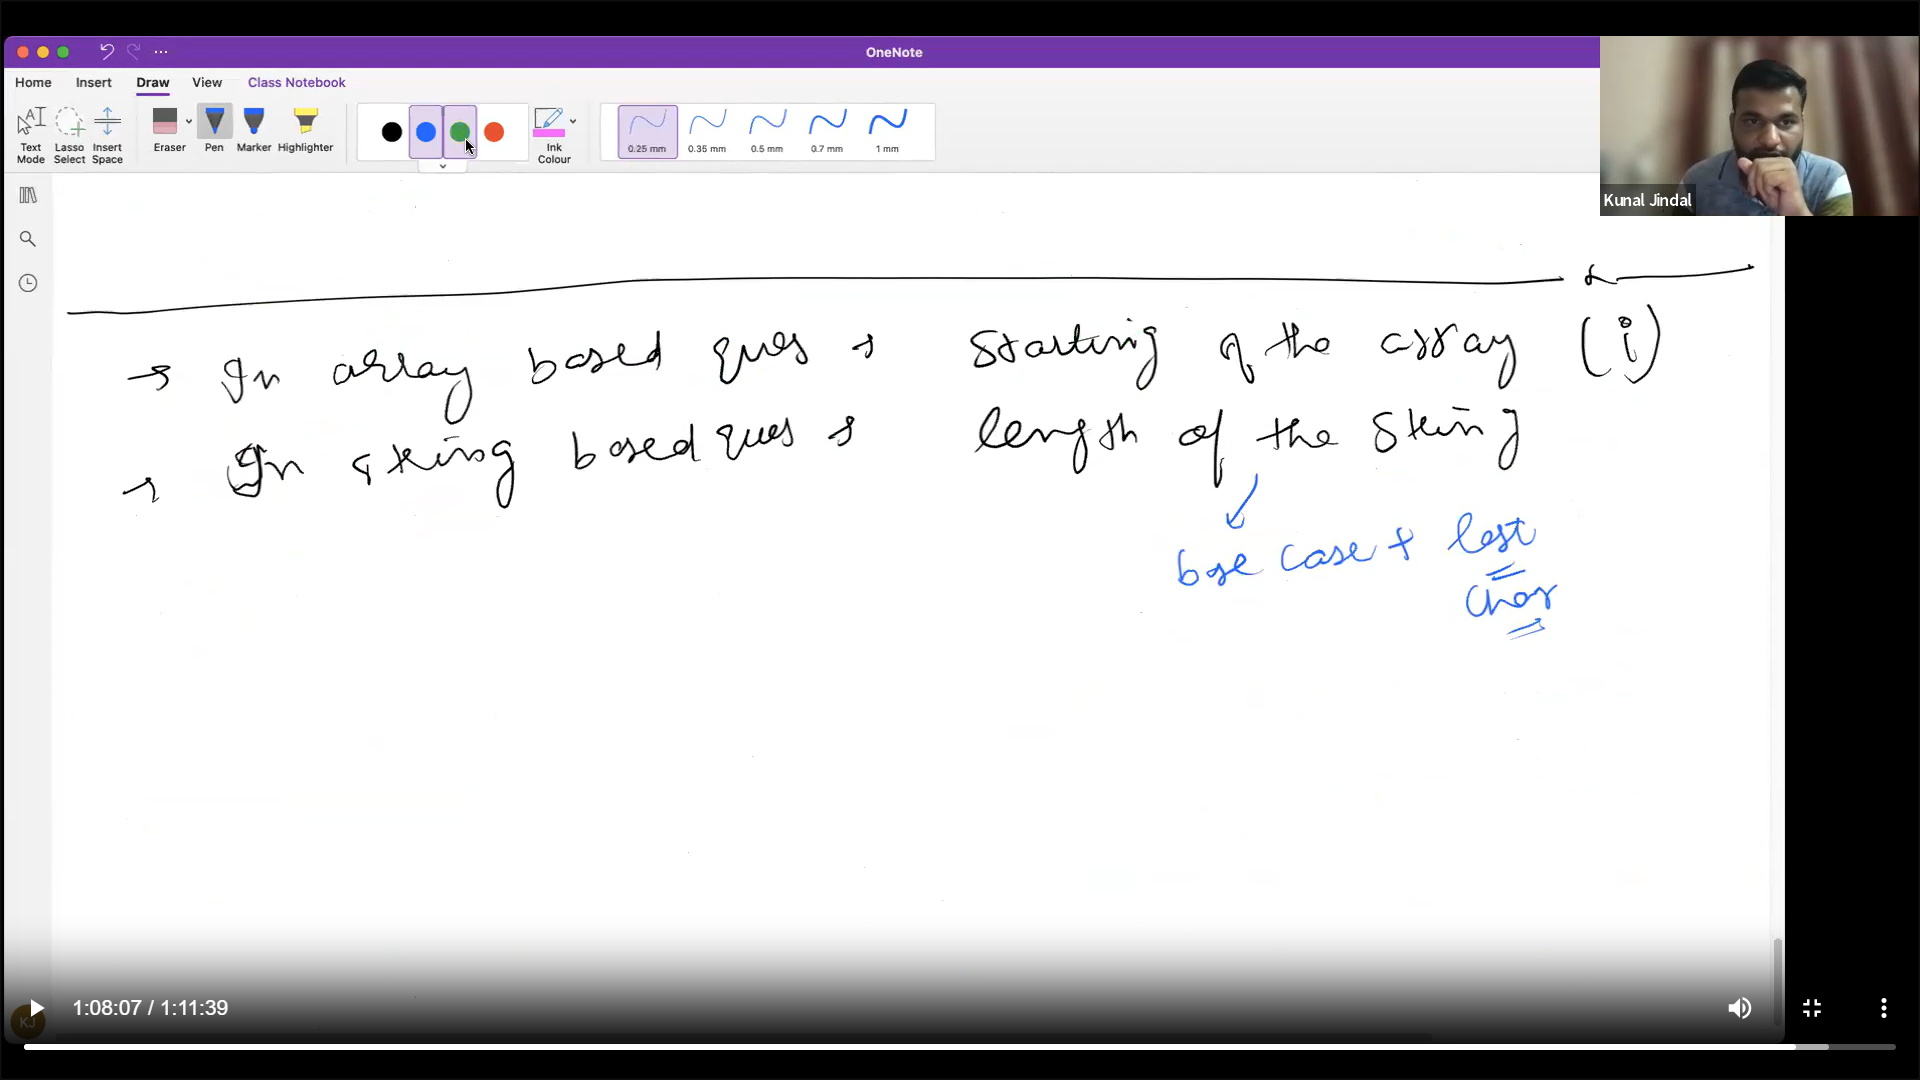 OneNote
Home Insert Draw View Class Notebook
Text Mode
Lasso Select
Insert Space
Eraser
Pen
Marker
Highlighter
Ink Colour
0.25 mm
0.35 mm
0.5 mm
0.7 mm
1 mm
Kunal Jindal
→ In array based ques → Starting of the array (i)
→ In string based ques → length of the string
base case + last
char
KJ
1:08:07 / 1:11:39